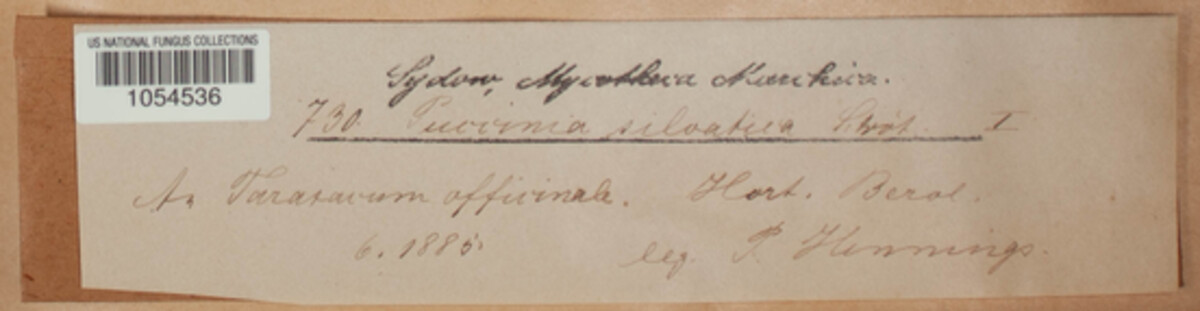 US NATIONAL FUNGUS COLLECTIONS
1054536
Sydow, Mycotheca Marchica.
730. Puccinia silvatica Schröt. I
An Taraxacum officinale. Hort. Berol.
6. 1885. leg. P. Hennings.